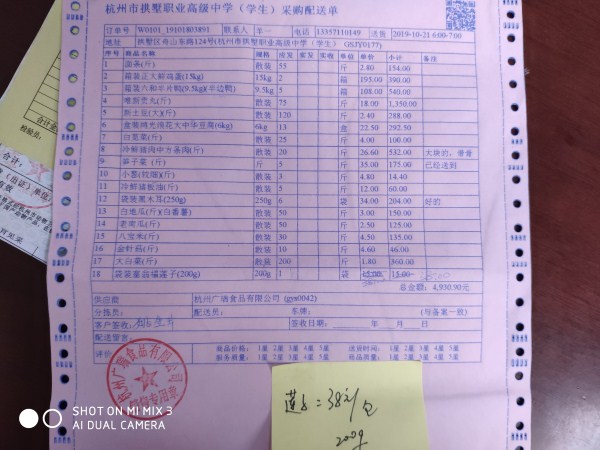 杭州市拱墅职业高级中学（学生）采购配送单
订单号 W0101_19101803891 联系人 羊一 电话 13357110149 送货 2019-10-21 6:00-7:00
地址 拱墅区舟山东路124号(杭州市拱墅职业高级中学（学生） GSJY0177)
序号 商品名称 规格 应发 实发 实收 单位 单价 小计 备注
1 面条(斤) 散装 55 斤 2.80 154.00
2 箱装正大鲜鸡蛋(15kg) 15kg 2 箱 195.00 390.00
3 箱装六和半片鸭(9.5kg)(半边鸭) 9.5kg 5 箱 108.00 540.00
4 贡丸(斤) 散装 75 斤 18.00 1,350.00
5 新土豆(大)(斤) 散装 120 斤 2.40 288.00
6 盒装鸿光浣花大中华豆腐(6kg) 6kg 13 盒 22.50 292.50
7 白苋菜(斤) 散装 25 斤 4.00 100.00
8 冷鲜猪肉中方条肉(斤) 散装 20 斤 26.60 532.00 大块的，带骨
9 笋子菜 (斤) 斤 5 斤 35.00 175.00 已经送到
10 小葱(较细)(斤) 散装 3 斤 4.80 14.40
11 冷鲜猪板油(斤) 散装 5 斤 12.00 60.00
12 袋装黑木耳(250g) 250g 6 袋 34.00 204.00 好的
13 白地瓜(斤)(白番薯) 散装 50 斤 3.00 150.00
14 老南瓜(斤) 散装 50 斤 2.50 125.00
15 八宝米(斤) 散装 30 斤 4.50 135.00
16 金针菇(斤) 散装 10 斤 4.60 46.00
17 大白菜(斤) 散装 200 斤 1.80 360.00
18 袋装童品福莲子(200g) 200g 1 袋 15.00 15.00
总金额: 4,930.90元
供应商 杭州广瑞食品有限公司 (gys0042)
分拣员: 配送员: 车牌: (与备案一致)
客户签收: 签收日期: 年 月 日
配送留言:
评价 商品价格: 1星 2星 3星 4星 5星 送货时间: 1星 2星 3星 4星 5星
服务质量: 1星 2星 3星 4星 5星 商品质量: 1星 2星 3星 4星 5星
杭州广瑞食品有限公司
销专用章
莲子=38元/包
200g
检验员:
合计:
SHOT ON MI MIX 3
AI DUAL CAMERA